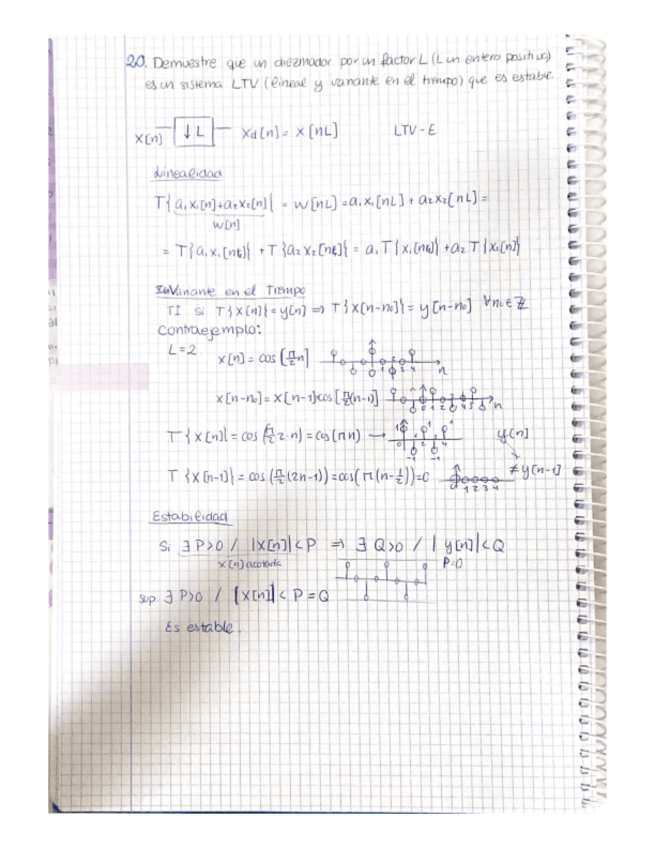 20. Demuestre que un diezmador por un factor L (L un entero positivo)
es un sistema LTV (lineal y variante en el tiempo) que es estable.
x[n] ↓L Xd[n] = x[nL] LTV-E
Linealidad
T{a₁x₁[n]+a₂x₂[n]} = w[nL] = a₁x₁[nL] + a₂x₂[nL] =
w[n]
= T{a₁x₁[n]} + T{a₂x₂[n]} = a₁T{x₁[n]} + a₂T{x₂[n]}
InVariante en el Tiempo
TI si T{x[n]} = y[n] ⇒ T{x[n-n₀]} = y[n-n₀] ∀n₀ ∈ ℤ
Contraejemplo:
L=2 x[n] = cos[π/2 n] n
x[n-n₀] = x[n-1] cos[π/2(n-1)] n
T{x[n]} = cos(π/2 2·n) = cos(πn) → y[n]
T{x[n-1]} = cos(π/2(2n-1)) = cos(π(n-1/2)) = 0 1 2 3 4 ≠ y[n-1]
Estabilidad
Si ∃ P>0 / |x[n]| < P ⇒ ∃ Q>0 / |y[n]| < Q
x[n] acotada P=Q
sup. ∃ P>0 / |x[n]| < P = Q
Es estable.